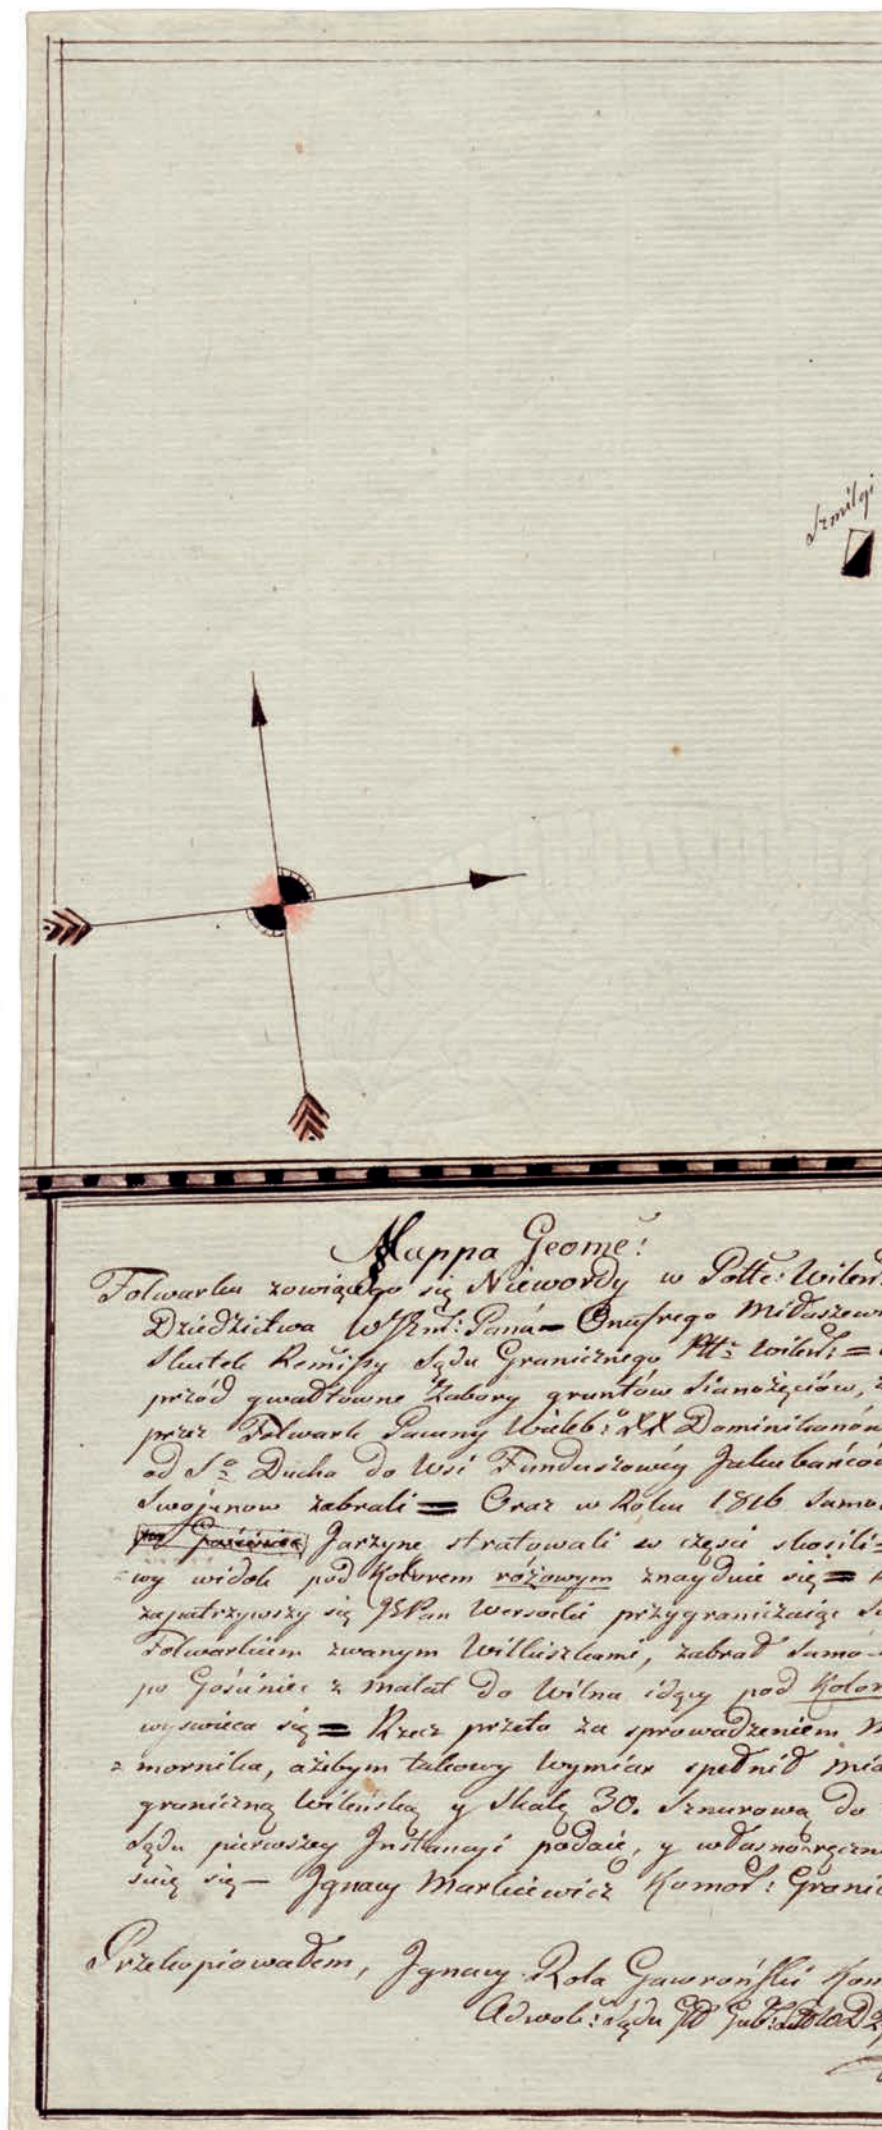 Szmilgi
Mappa Geome:
Folwarku zowiącego się Niewordy w Potte: Wileń:
Dziedzictwa Pana = Onufrego Midaszew
Skutek Remissy Sądu Granicznego Ptt: Wileń: =
przód gwałtowne Zabory gruntów Sianożęciów,
przez Folwark Pacuny Wieleb: XX Dominikanów
od So Ducha do Wsi Funduszowéy Jakubańców
Swojunow zabrali = Oraz w Roku 1816 Samo
Jarzyne stratowali w częsci skosili =
=wy widok pod Kolorem różowym znayduie się =
zapatrzywszy się JEPan Wersocki przygraniczaiąc
Folwarkiem zwanym Williuszkami, zabrał Samo
po Gościniec z Malat do Wilna idący pod Kolor
wyswieca się = Rzecz przeto za sprowadzeniem
=mornika, ażebym takowy Wymiar spełnił
graniczną Wileńską y Skalę 30. Sznurową do
Sądu pierwszey Instancyi podaię, y własnoręczn
suię się — Jgnacy Markiewicz Komor: Grani
Przekopiowałem, Jgnacy Rola Gawroński Kom
Adwok: Sądu Gł Gub: